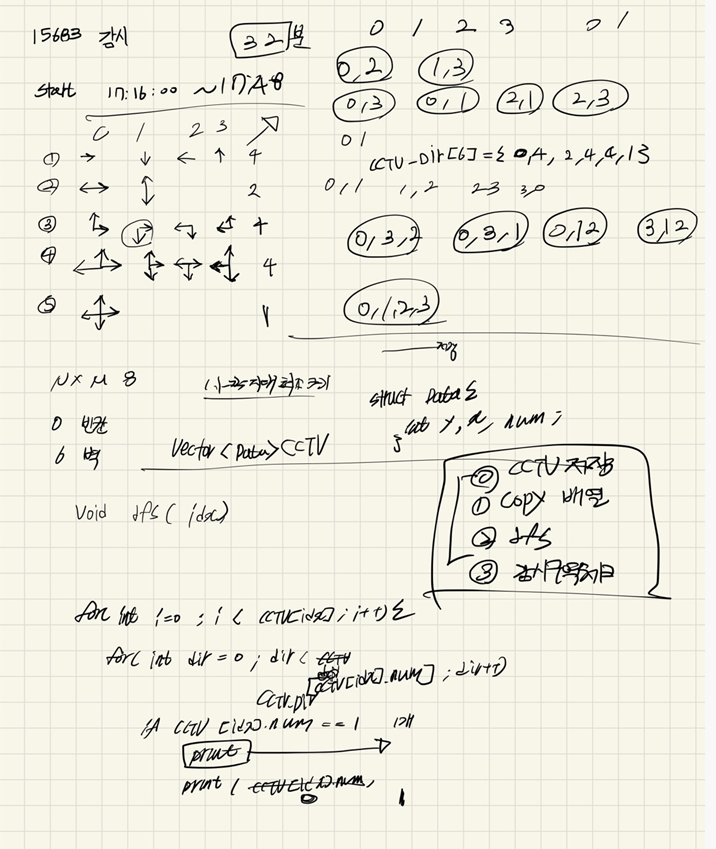 15683 감시
32분
start 17:16:00 ~17:48
0 1 2 3
① → ↓ ← ↑ 4
② ↔ ↕ 2
③ 4
④ 4
⑤ 1
0 1 2 3 0 1
0,2 1,3
0,3 0,1 2,1 2,3
0 1
CCTV_Dir[6] = { 0,4, 2,4,4,1};
0,1 1,2 23 3,0
0,3,2 0,3,1 0,12 3,12
0,1,2,3
저장
N x M 8
0 빈칸
6 벽
Vector<Data>CCTV
struct Data{
int y, x, num;
}
⓪ CCTV 저장
① Copy 배열
② dfs
③ 감시구역체크
Void dfs( idx)
for int i=0 ; i < CCTV[idx] ; i++){
for( int dir = 0 ; dir <
CCTV_Dir[CCTV[idx].num] ; dir++)
if CCTV [idx].num == 1
print
print (